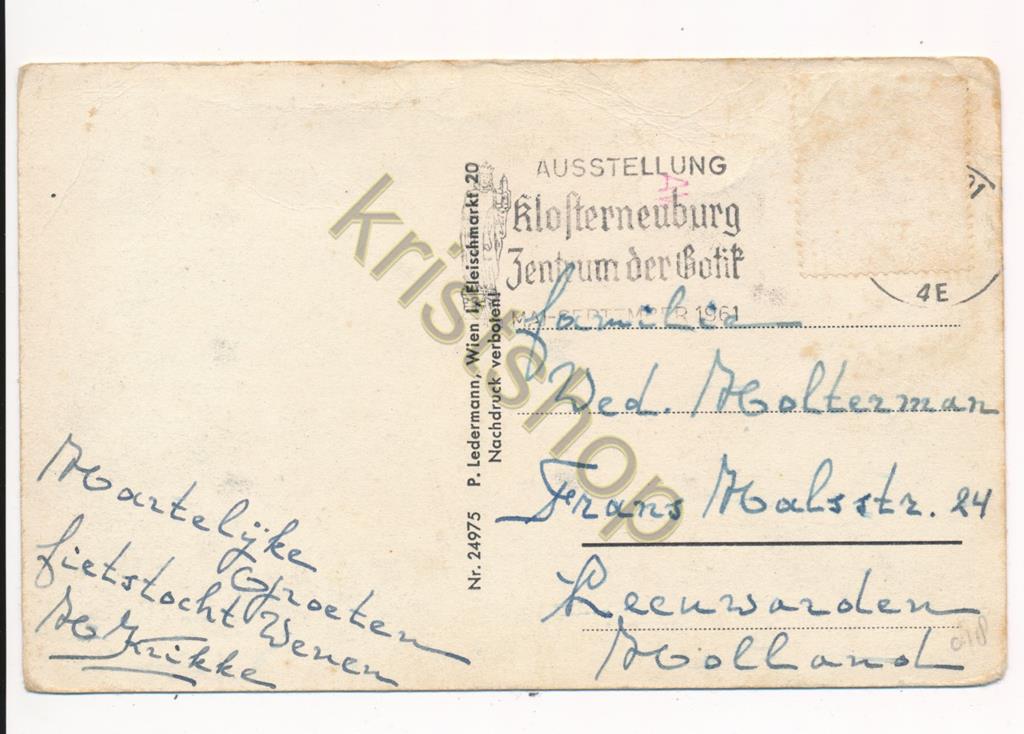 Hartelijke
Groeten
fietstocht Wenen
H Krikke
Nr. 24975 P. Ledermann, Wien I, Fleischmarkt 20
Nachdruck verboten!
AUSSTELLUNG
Klosterneuburg
Zentrum der Gotik
MAI-SEPTEMBER 1961
4E
familie
Wed. Holterman
Frans Halsstr. 24
Leeuwarden
Holland
kristshop